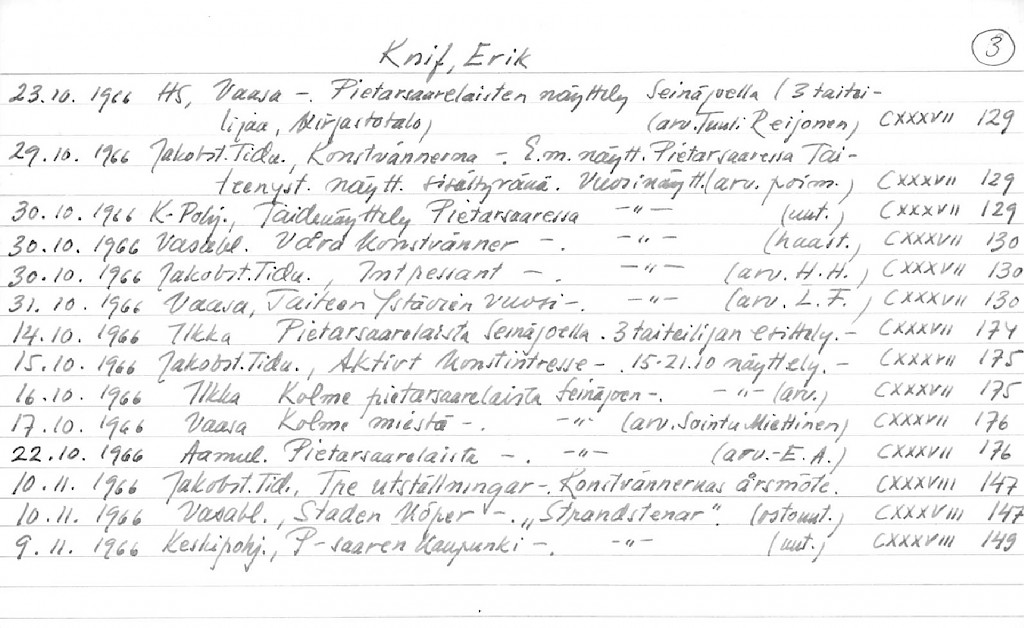 Knif, Erik
3
23.10. 1966 HS, Vaasa -. Pietarsaarelaisten näyttely Seinäjoella (3 taitei-
lijaa, Kirjastotalo) (arv. Tuuli Reijonen) CXXXVII 129
29.10. 1966 Jakobst. Tidn., Konstvännerna -. E.m. näytt. Pietarsaaressa Tai-
teenyst. näytt. sisältyvänä. Vuosinäytt. (arv. poim.) CXXXVII 129
30.10. 1966 K-Pohj., Taidenäyttely Pietarsaaressa -"- (uut.) CXXXVII 129
30.10. 1966 Vasabl. Våra Konstvänner -. -"- (haast.) CXXXVII 130
30.10. 1966 Jakobst. Tidn., Intressant -. -"- (arv. H.H.) CXXXVII 130
31.10. 1966 Vaasa, Taiteen Ystävien vuosi-. -"- (arv. L.F.) CXXXVII 130
14.10. 1966 Ilkka Pietarsaarelaista Seinäjoella. 3 taiteilijan esittely. - CXXXVII 174
15.10. 1966 Jakobst. Tidn., Aktivt Konstintresse -. 15-21.10 näyttely. - CXXXVII 175
16.10. 1966 Ilkka Kolme pietarsaarelaista Seinäjoen -. -"- (arv.) CXXXVII 175
17.10. 1966 Vaasa Kolme miestä -. -"- (arv. Sointu Miettinen) CXXXVII 176
22.10. 1966 Aamul. Pietarsaarelaista -. -"- (arv. -E.A.) CXXXVII 176
10.11. 1966 Jakobst. Tid., Tre utställningar -. Konstvännernas årsmöte. CXXXVIII 147
10.11. 1966 Vasabl., Staden Köper -. "Strandstenar". (ostouut.) CXXXVIII 147
9.11. 1966 Keskipohj., P-saaren Kaupunki -. -"- (uut.) CXXXVIII 149